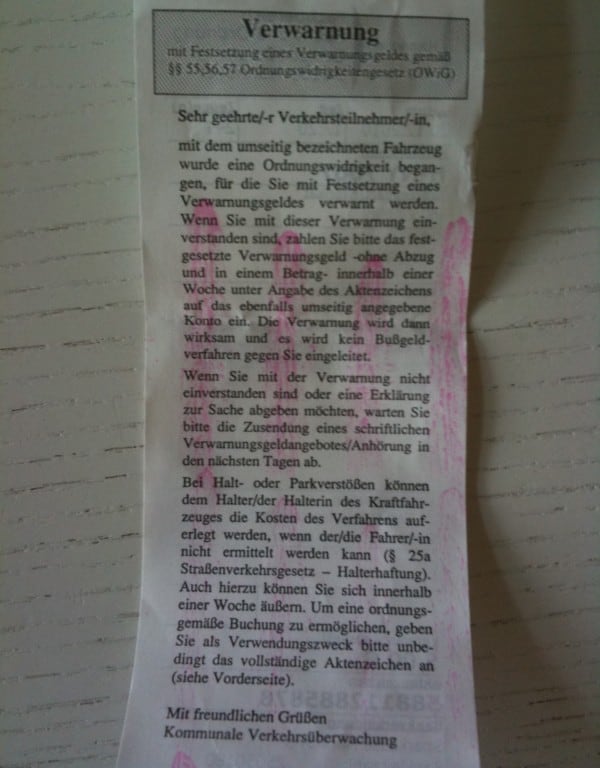 Verwarnung
mit Festsetzung eines Verwarnungsgeldes gemäß
§§ 55,56,57 Ordnungswidrigkeitengesetz (OWiG)
Sehr geehrte/-r Verkehrsteilnehmer/-in,
mit dem umseitig bezeichneten Fahrzeug
wurde eine Ordnungswidrigkeit began-
gen, für die Sie mit Festsetzung eines
Verwarnungsgeldes verwarnt werden.
Wenn Sie mit dieser Verwarnung ein-
verstanden sind, zahlen Sie bitte das fest-
gesetzte Verwarnungsgeld -ohne Abzug
und in einem Betrag- innerhalb einer
Woche unter Angabe des Aktenzeichens
auf das ebenfalls umseitig angegebene
Konto ein. Die Verwarnung wird dann
wirksam und es wird kein Bußgeld-
verfahren gegen Sie eingeleitet.
Wenn Sie mit der Verwarnung nicht
einverstanden sind oder eine Erklärung
zur Sache abgeben möchten, warten Sie
bitte die Zusendung eines schriftlichen
Verwarnungsgeldangebotes/Anhörung in
den nächsten Tagen ab.
Bei Halt- oder Parkverstößen können
dem Halter/der Halterin des Kraftfahr-
zeuges die Kosten des Verfahrens auf-
erlegt werden, wenn der/die Fahrer/-in
nicht ermittelt werden kann (§ 25a
Straßenverkehrsgesetz – Halterhaftung).
Auch hierzu können Sie sich innerhalb
einer Woche äußern. Um eine ordnungs-
gemäße Buchung zu ermöglichen, geben
Sie als Verwendungszweck bitte unbe-
dingt das vollständige Aktenzeichen an
(siehe Vorderseite).
Mit freundlichen Grüßen
Kommunale Verkehrsüberwachung